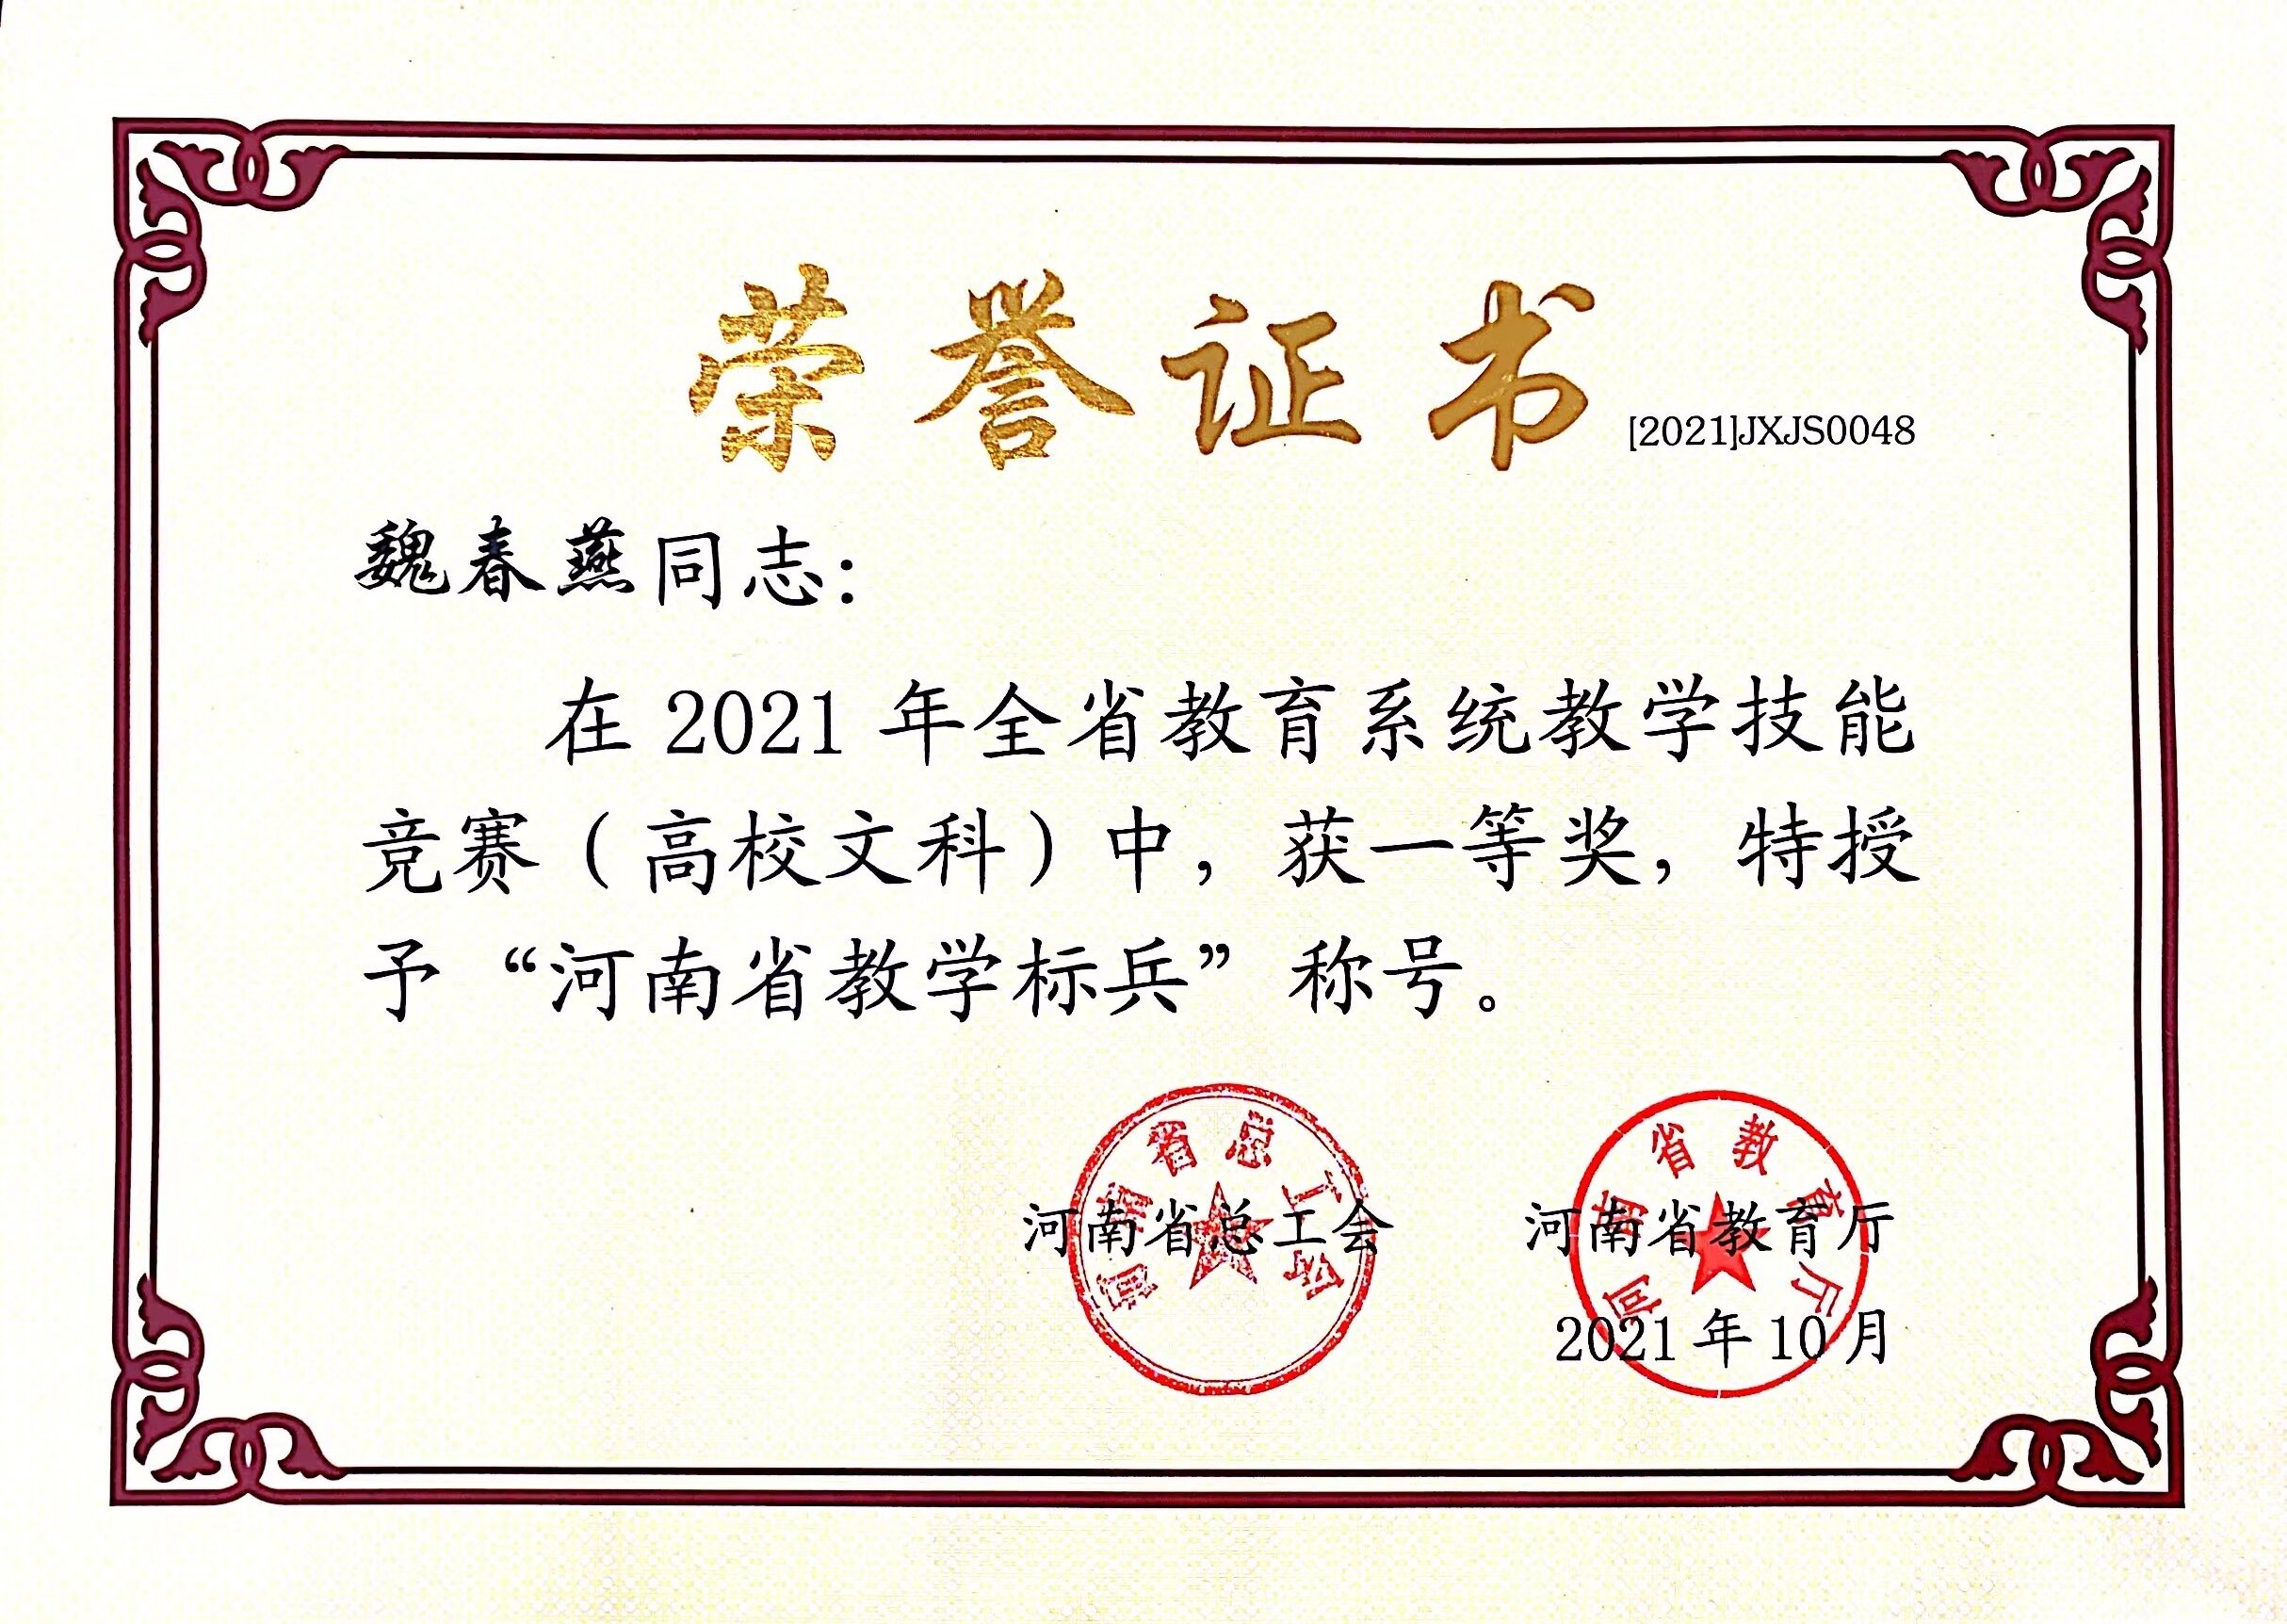 荣誉证书 [2021]JXJS0048
魏春燕同志：
在 2021 年全省教育系统教学技能
竞赛（高校文科）中，获一等奖，特授
予“河南省教学标兵”称号。
河南省总工会
河南省总工会 河南省教育厅
河南省教育厅
2021 年 10 月